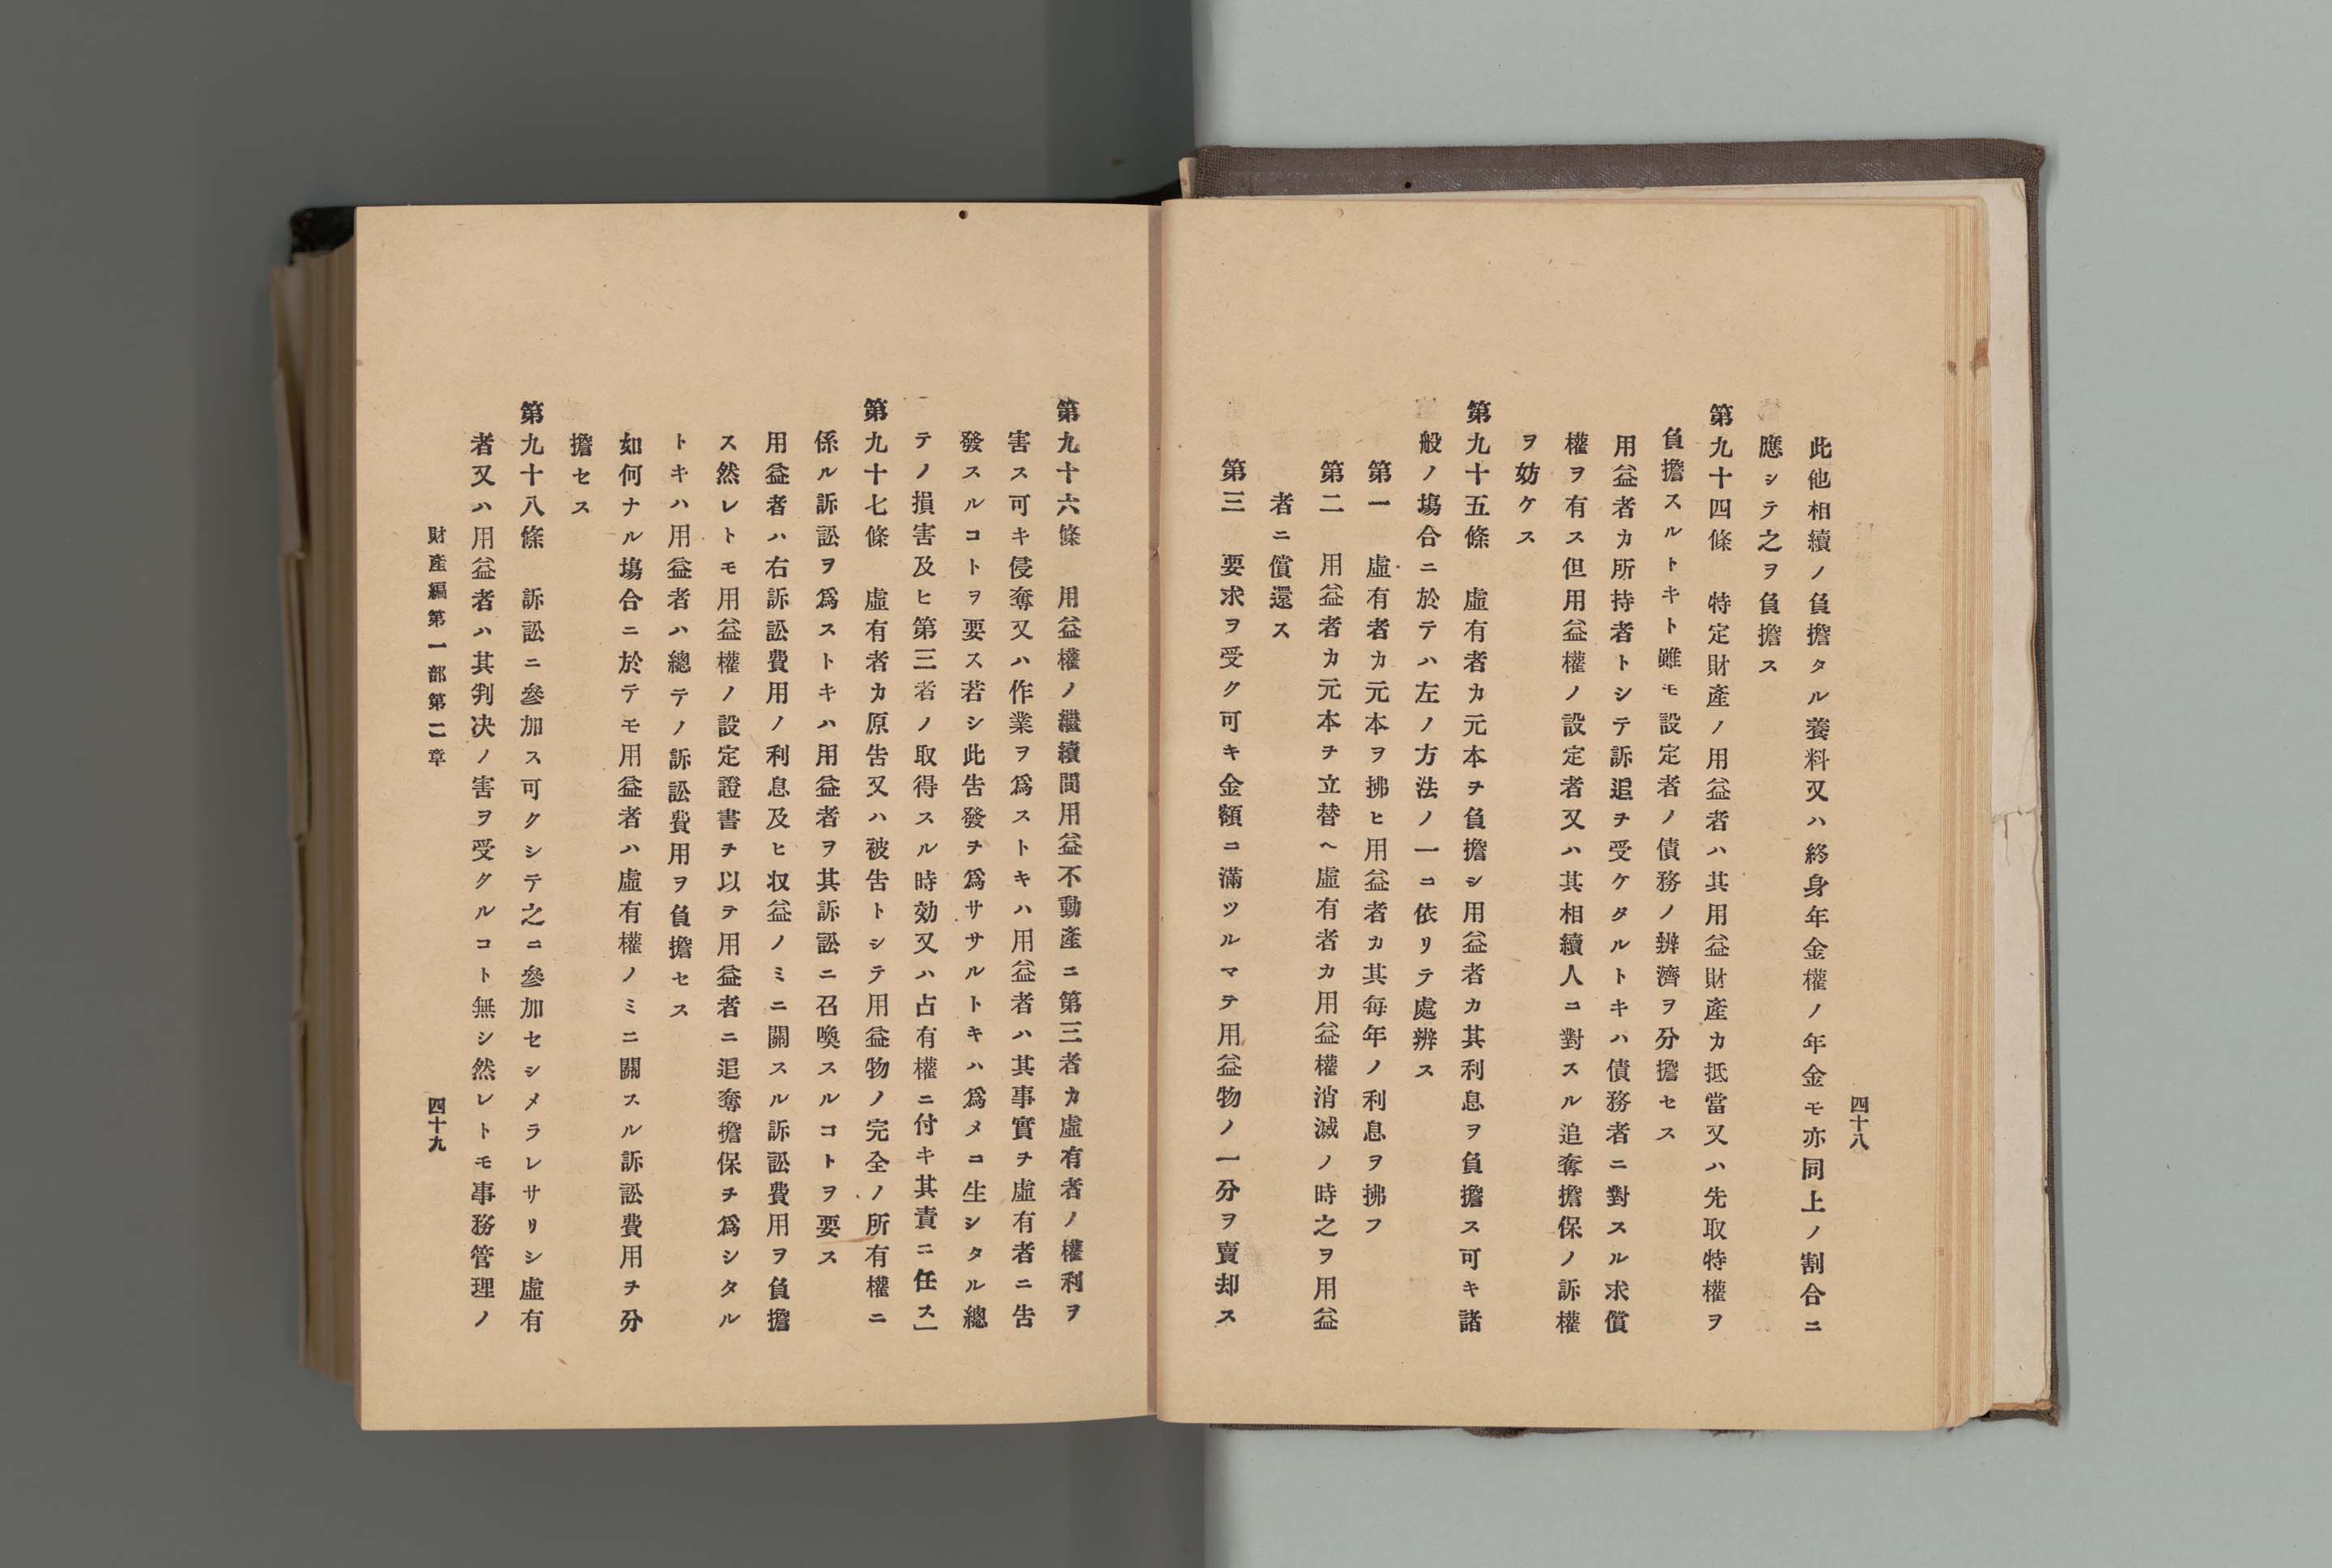 四十八
此他相續ノ負擔タル養料又ハ終身年金權ノ年金モ亦同上ノ割合ニ
應シテ之ヲ負擔ス
第九十四條　特定財產ノ用益者ハ其用益財產カ抵當又ハ先取特權ヲ
負擔スルトキト雖モ設定者ノ債務ノ辨濟ヲ分擔セス
用益者カ所持者トシテ訴追ヲ受ケタルトキハ債務者ニ對スル求償
權ヲ有ス但用益權ノ設定者又ハ其相續人ニ對スル追奪擔保ノ訴權
ヲ妨ケス
第九十五條　虛有者カ元本ヲ負擔シ用益者カ其利息ヲ負擔ス可キ諸
般ノ塲合ニ於テハ左ノ方法ノ一ニ依リテ處辨ス
第一　虛有者カ元本ヲ拂ヒ用益者カ其每年ノ利息ヲ拂フ
第二　用益者カ元本ヲ立替ヘ虛有者カ用益權消滅ノ時之ヲ用益
者ニ償還ス
第三　要求ヲ受ク可キ金額ニ滿ツルマテ用益物ノ一分ヲ賣却ス
第九十六條　用益權ノ繼續間用益不動產ニ第三者カ虛有者ノ權利ヲ
害ス可キ侵奪又ハ作業ヲ爲ストキハ用益者ハ其事實ヲ虛有者ニ告
發スルコトヲ要ス若シ此告發ヲ爲ササルトキハ爲メニ生シタル總
テノ損害及ヒ第三者ノ取得スル時効又ハ占有權ニ付キ其責ニ任ス」
第九十七條　虛有者カ原告又ハ被告トシテ用益物ノ完全ノ所有權ニ
係ル訴訟ヲ爲ストキハ用益者ヲ其訴訟ニ召喚スルコトヲ要ス
用益者ハ右訴訟費用ノ利息及ヒ収益ノミニ關スル訴訟費用ヲ負擔
ス然レトモ用益權ノ設定證書ヲ以テ用益者ニ追奪擔保ヲ爲シタル
トキハ用益者ハ總テノ訴訟費用ヲ負擔セス
如何ナル塲合ニ於テモ用益者ハ虛有權ノミニ關スル訴訟費用ヲ分
擔セス
第九十八條　訴訟ニ參加ス可クシテ之ニ參加セシメラレサリシ虛有
者又ハ用益者ハ其判决ノ害ヲ受クルコト無シ然レトモ事務管理ノ
財產編第一部第二章
四十九